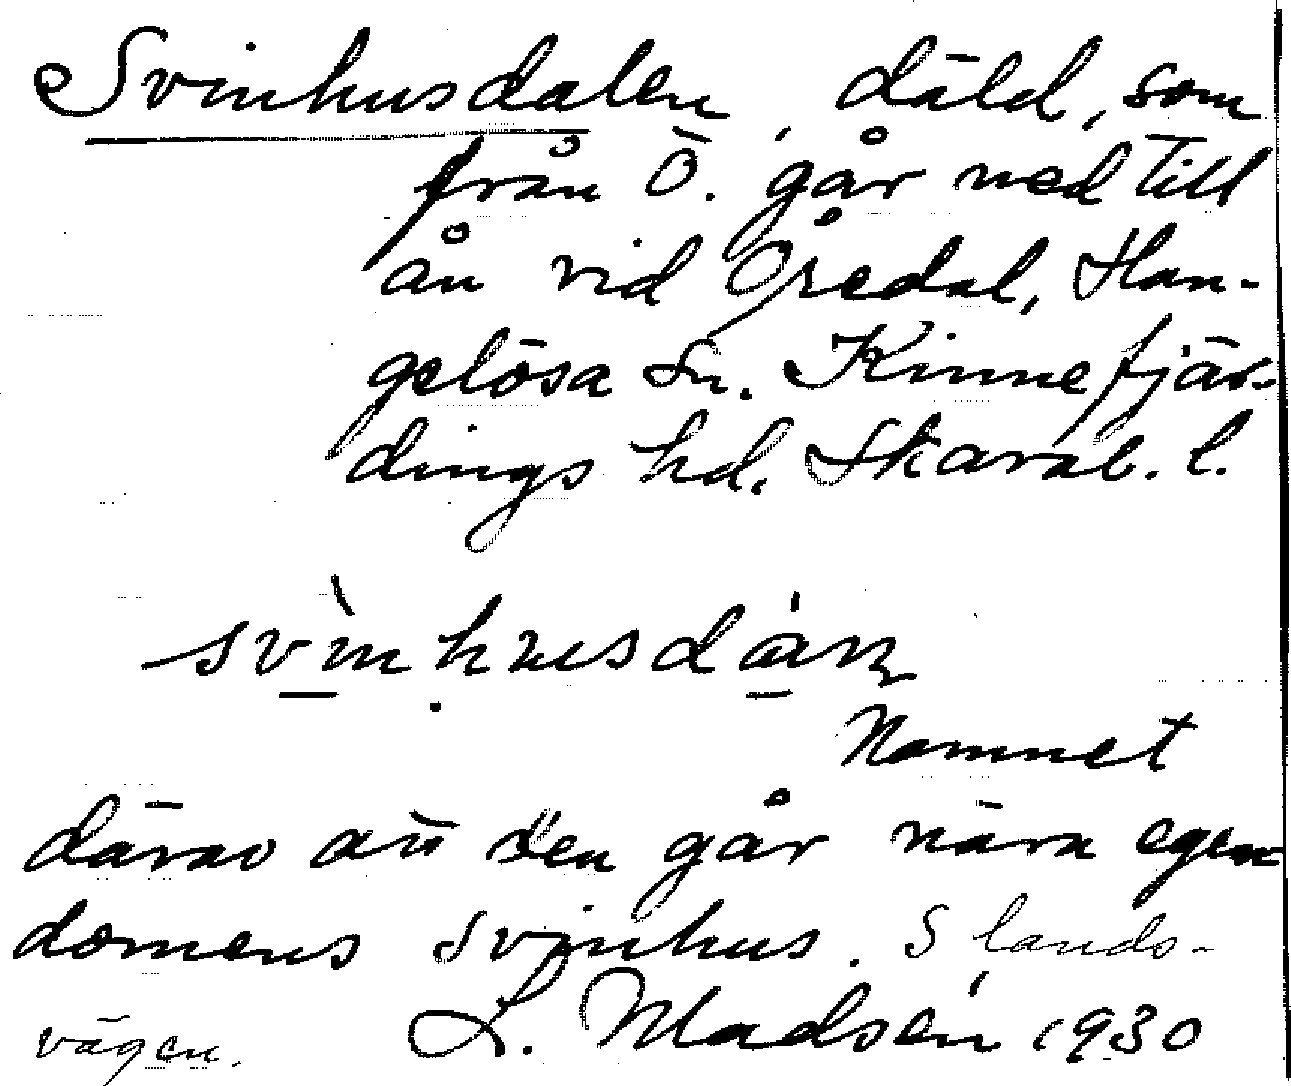 Svinhusdalen, däld, som
från Ö. går ned till
ån vid Öredal, Han-
gelösa sn. Kinnefjär-
dings hd. Skarab. l.
Namnet
därav att den går nära egen
domens svinhus. S lands-
vägen. L. Madsén 1930